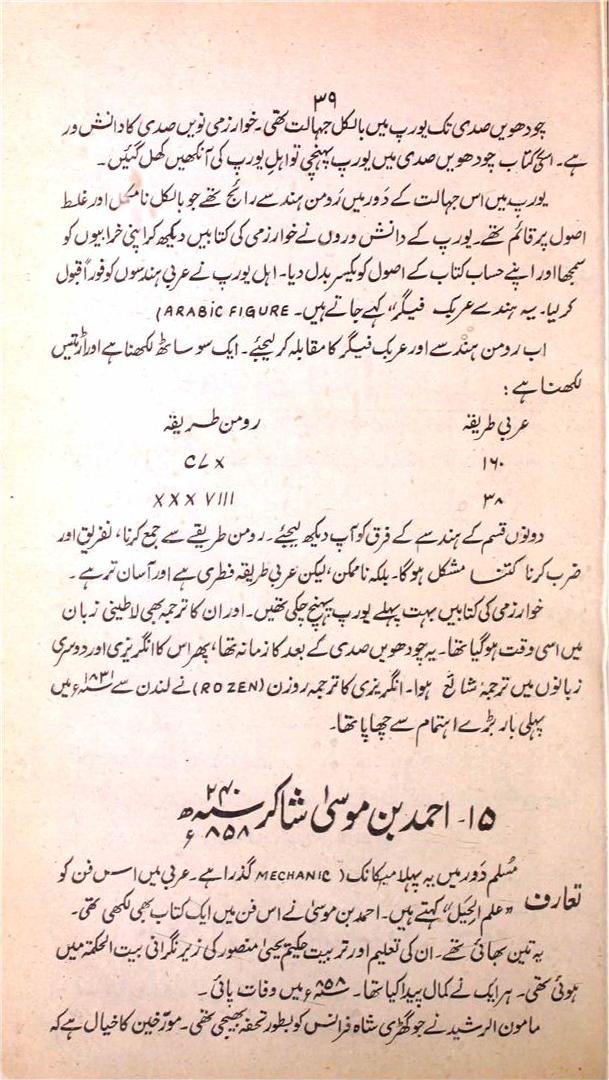 ۳۹
چودھویں صدی تک یورپ میں بالکل جہالت تھی۔ خوارزمی نویں صدی کا دانش ور
ہے۔ اسکی کتاب چودھویں صدی میں یورپ پہنچی تو اہل یورپ کی آنکھیں کھل گئیں۔
یورپ میں اس جہالت کے دَور میں رُومن ہندسے رائج تھے جو بالکل نامکمل اور غلط
اصول پر قائم تھے۔ یورپ کے دانش وروں نے خوارزمی کی کتابیں دیکھ کر اپنی خرابیوں کو
سمجھا اور اپنے حساب کتاب کے اصول کو یکسر بدل دیا۔ اہل یورپ نے عربی ہندسوں کو فوراً قبول
کر لیا۔ یہ ہندسے عربک فیگر" کہے جاتے ہیں۔ ARABIC FIGURE)
اب رومن ہندسے اور عربک فیگر کا مقابلہ کر لیجئے۔ ایک سو ساٹھ لکھنا ہے اور اڑتیس
لکھنا ہے:
عربی طریقہ رومن طریقہ
۱۶۰ CLX
۳۸ XXXVIII
دونوں قسم کے ہندسے کے فرق کو آپ دیکھ لیجئے۔ رومن طریقے سے جمع کرنا، تفریق اور
ضرب کرنا کتنا مشکل ہوگا۔ بلکہ ناممکن، لیکن عربی طریقہ فطری ہے اور آسان تر ہے۔
خوارزمی کی کتابیں بہت پہلے یورپ پہنچ چکی تھیں۔ اور ان کا ترجمہ بھی لاطینی زبان
میں اسی وقت ہوگیا تھا۔ یہ چودھویں صدی کے بعد کا زمانہ تھا، پھر اس کا انگریزی اور دوسری
زبانوں میں ترجمہ شائع ہوا۔ انگریزی کا ترجمہ روزن (ROZEN) نے لندن سے ۱۸۳۱ء میں
پہلی بار بڑے اہتمام سے چھاپا تھا۔
۱۵۔ احمد بن موسیٰ شاکر ۲۴۰ھ ۸۵۸ء
تعارف مُسلم دَور میں یہ پہلا میکانک (MECHANIC) گذرا ہے۔ عربی میں اس فن کو
"علم الحِیَل" کہتے ہیں۔ احمد بن موسیٰ نے اس فن میں ایک کتاب بھی لکھی تھی۔
یہ تین بھائی تھے۔ ان کی تعلیم اور تربیت حکیم یحییٰ منصور کی زیر نگرانی بیت الحکمۃ میں
ہوئی تھی۔ ہر ایک نے کمال پیدا کیا تھا۔ ۸۵۸ء میں وفات پائی۔
مامون الرشید نے جو گھڑی شاہ فرانس کو بطور تحفہ بھیجی تھی۔ مورّخین کا خیال ہے کہ